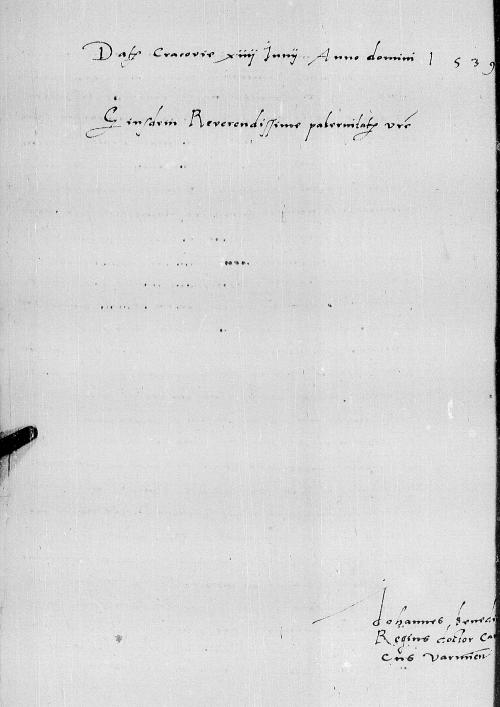 Datꝭ Cracovie xiiii Iunij Anno domini 1539
Eiusdem Reverendissime paternitatꝭ vr̃e
Johannes, benedi
Regius doctor Ca
cus Varmien